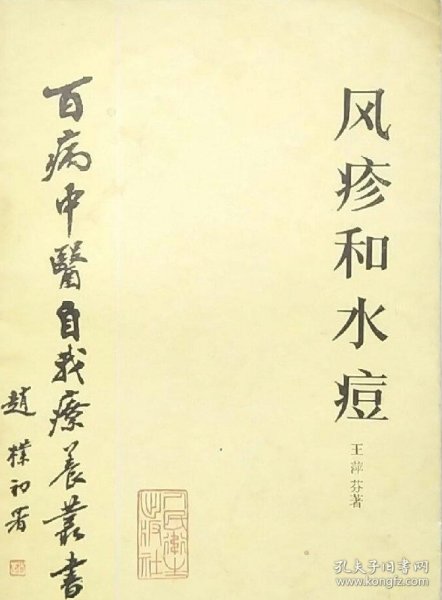 风疹和水痘
王萍芬著
百病中醫自我療養叢書
趙樸初署
人民衛生出版社
孔夫子旧书网